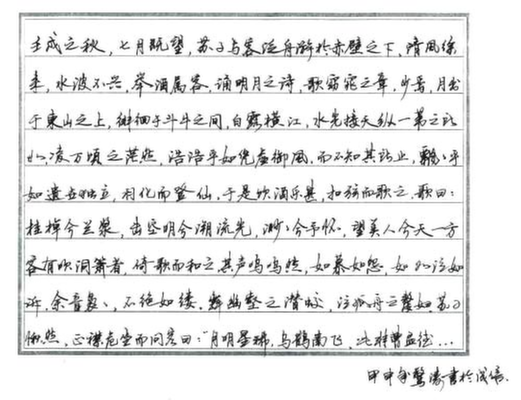 壬戌之秋，七月既望，苏子与客泛舟游於赤壁之下，清风徐
来，水波不兴，举酒属客，诵明月之诗，歌窈窕之章，少焉，月出
于東山之上，徘徊于斗牛之间，白露横江，水光接天纵一苇之所
如，凌万顷之茫然，浩浩乎如凭虚御風，而不知其所止，飘〻乎
如遗世独立，羽化而登仙，于是饮酒乐甚，扣弦而歌之，歌曰：
桂棹兮兰桨，击空明兮溯流光，渺〻兮予怀，望美人兮天一方
客有吹洞箫者，倚歌而和之其声呜呜然，如慕如怨，如泣如
诉，余音袅〻，不绝如缕，舞幽壑之潜蛟，泣孤舟之嫠妇 苏子
愀然，正襟危坐而问客曰：“月明星稀，乌鹊南飞，此非曹孟德…
甲申年驚涛書於成